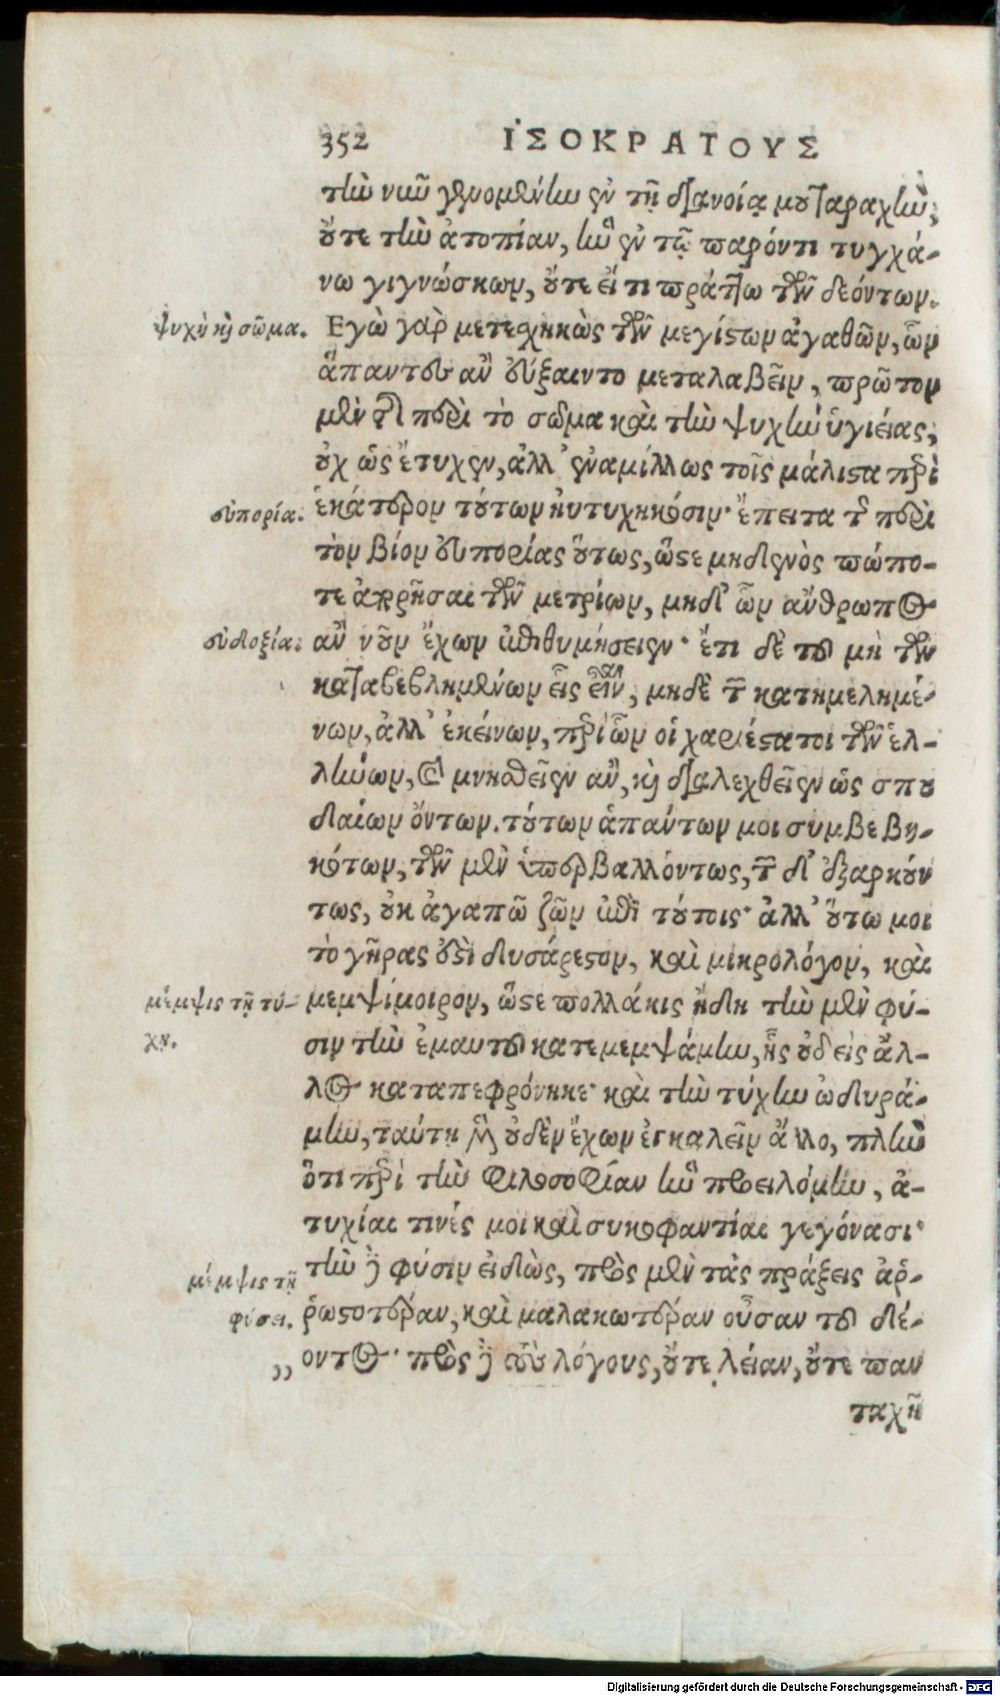 352 ἸΣΟΚΡΑΤΟΥΣ
τὴν νῦν γενομένην ἐν τῇ διανοίᾳ μου ταραχὴν,
οὔτε τὴν ἀτοπίαν, ἣν ἐν τῷ παρόντι τυγχά-
νω γιγνώσκων, οὔτε εἴ τι πράττω τῶν δεόντων.
ψυχὴ καὶ σῶμα. Εγὼ γὰρ μετεχηκὼς τῶν μεγίστων ἀγαθῶν, ὧν
ἅπαντες ἂν εὔξαιντο μεταλαβεῖν, πρῶτον
μὲν τῆς περὶ τὸ σῶμα καὶ τὴν ψυχὴν ὑγιείας,
οὐχ ὡς ἔτυχεν, ἀλλ' ἐναμίλλως τοῖς μάλιστα περὶ
εὐπορία. ἑκάτερον τούτων ηὐτυχηκόσιν· ἔπειτα τῆς περὶ
τὸν βίον εὐπορίας οὕτως, ὥστε μηδενὸς πώπο-
τε ἀπορῆσαι τῶν μετρίων, μηδ' ὧν ἄνθρωπος
εὐδοξία. ἂν νοῦν ἔχων ἐπιθυμήσειεν· ἔτι δὲ τοῦ μὴ τῶν
καταβεβλημένων εἷς εἶναι, μηδὲ τῶν κατημελημέ-
νων, ἀλλ' ἐκείνων, περὶ ὧν οἱ χαριέστατοι τῶν ἑλ-
λήνων, καὶ μνησθεῖεν ἂν, καὶ διαλεχθεῖεν ὡς σπου
δαίων ὄντων. τούτων ἁπάντων μοι συμβεβη-
κότων, τῶν μὲν ὑπερβαλλόντως, τῶν δ' ἐξαρκούν
τως, οὐκ ἀγαπῶ ζῶν ἐπὶ τούτοις· ἀλλ' οὕτω μοι
τὸ γῆρας ἐστὶ δυσάρεστον, καὶ μικρολόγον, καὶ
μέμψις τῇ τύ- μεμψίμοιρον, ὥστε πολλάκις ἤδη τὴν μὲν φύ-
χῃ. σιν τὴν ἐμαυτοῦ κατεμεμψάμην, ἧς οὐδεὶς ἄλ-
λος καταπεφρόνηκε· καὶ τὴν τύχην ὠδυρά-
μην, ταύτῃ μὲν οὐδὲν ἔχων ἐγκαλεῖν ἄλλο, πλὴν
ὅτι περὶ τὴν φιλοσοφίαν ἣν προειλόμην, ἀ-
τυχίαι τινές μοι καὶ συκοφαντίαι γεγόνασι·
μέμψις τῇ τὴν δὲ φύσιν εἰδὼς, πρὸς μὲν τὰς πράξεις ἀῤ-
φύσει. ῥωστοτέραν, καὶ μαλακωτέραν οὖσαν τοῦ δέ-
,, οντος· πρὸς δὲ τοὺς λόγους, οὔτε λείαν, οὔτε παν
ταχῆ
Digitalisierung gefördert durch die Deutsche Forschungsgemeinschaft - DFG